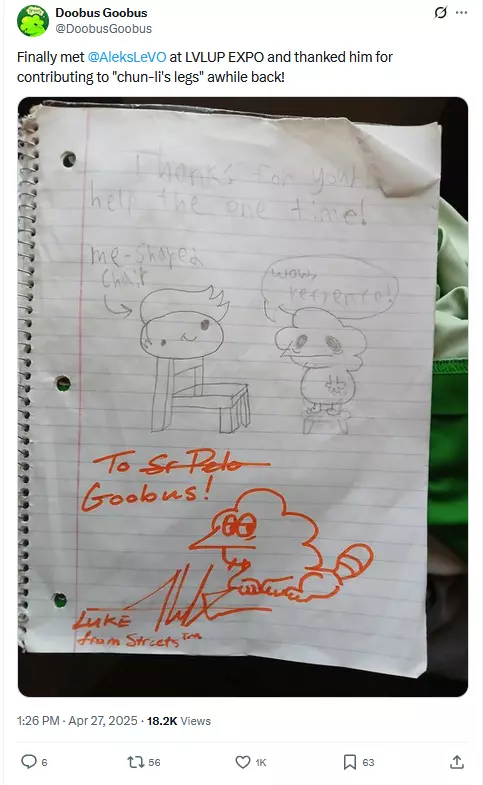 Doobus Goobus
@DoobusGoobus
Finally met @AleksLeVO at LVLUP EXPO and thanked him for
contributing to "chun-li's legs" awhile back!
Thanks for your
help the one time!
me-shaped
chair
wow,
referenco!
To Sr Pelo
Goobus!
LUKE
from Streets™
1:26 PM · Apr 27, 2025 · 18.2K Views
6 56 1K 63